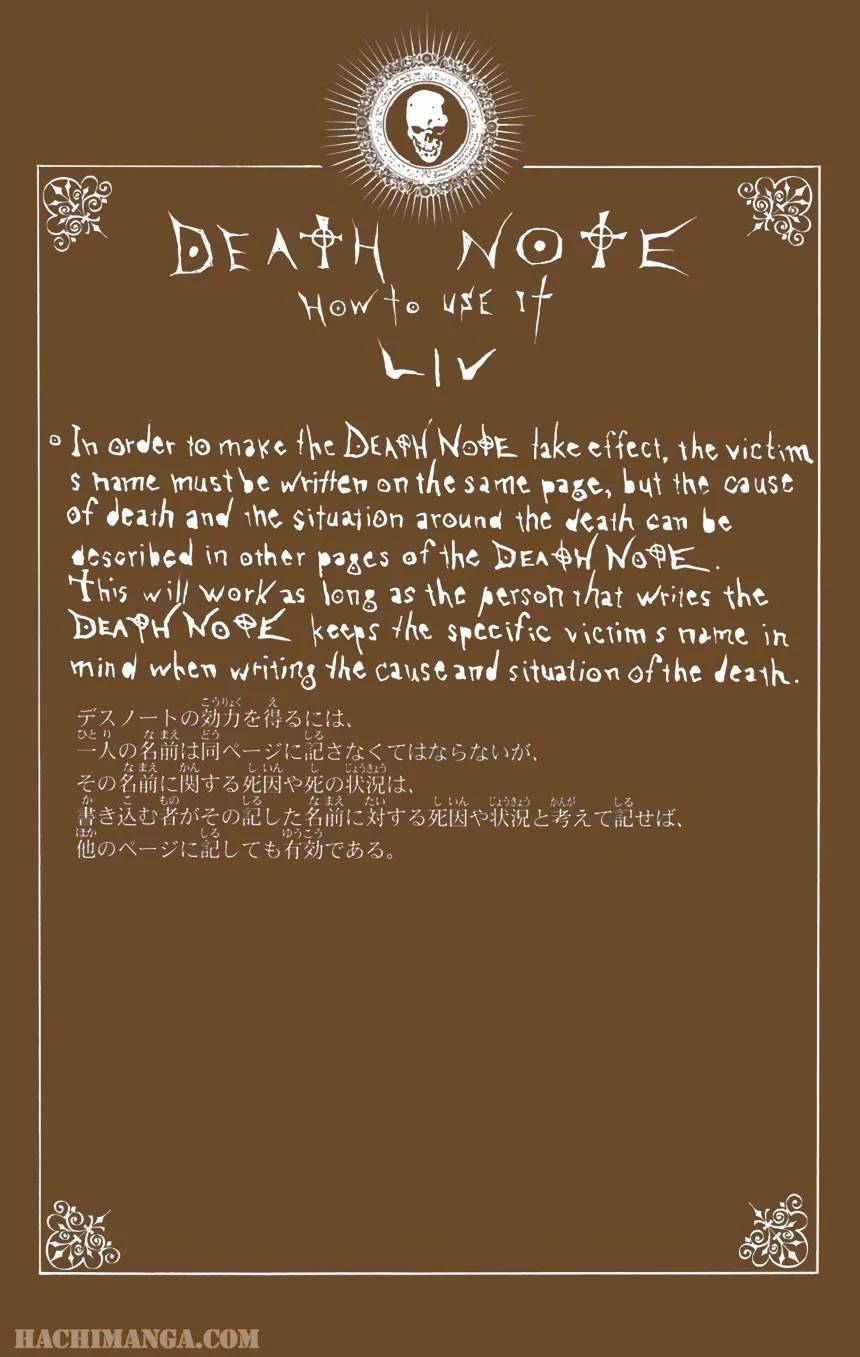 DEATH NOTE
HOW to USE IT
LIV
In order to make the DEATH NOTE take effect, the victim
s name must be written on the same page, but the cause
of death and the situation around the death can be
described in other pages of the DEATH NOTE.
This will work as long as the person that writes the
DEATH NOTE keeps the specific victim s name in
mind when writing the cause and situation of the death.
こうりょく え
デスノートの効力を得るには、
ひとり なまえ どう しる
一人の名前は同ページに記さなくてはならないが、
なまえ かん しいん し じょうきょう
その名前に関する死因や死の状況は、
か こ もの しる なまえ たい しいん じょうきょう かんが しる
書き込む者がその記した名前に対する死因や状況と考えて記せば、
ほか しる ゆうこう
他のページに記しても有効である。
HACHIMANGA.COM